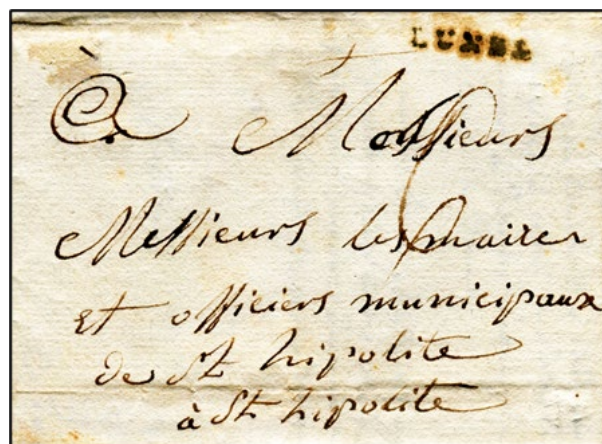 LUNEL
À Messieurs
Messieurs les maires
et officiers municipaux
de St hipolite
à St hipolite